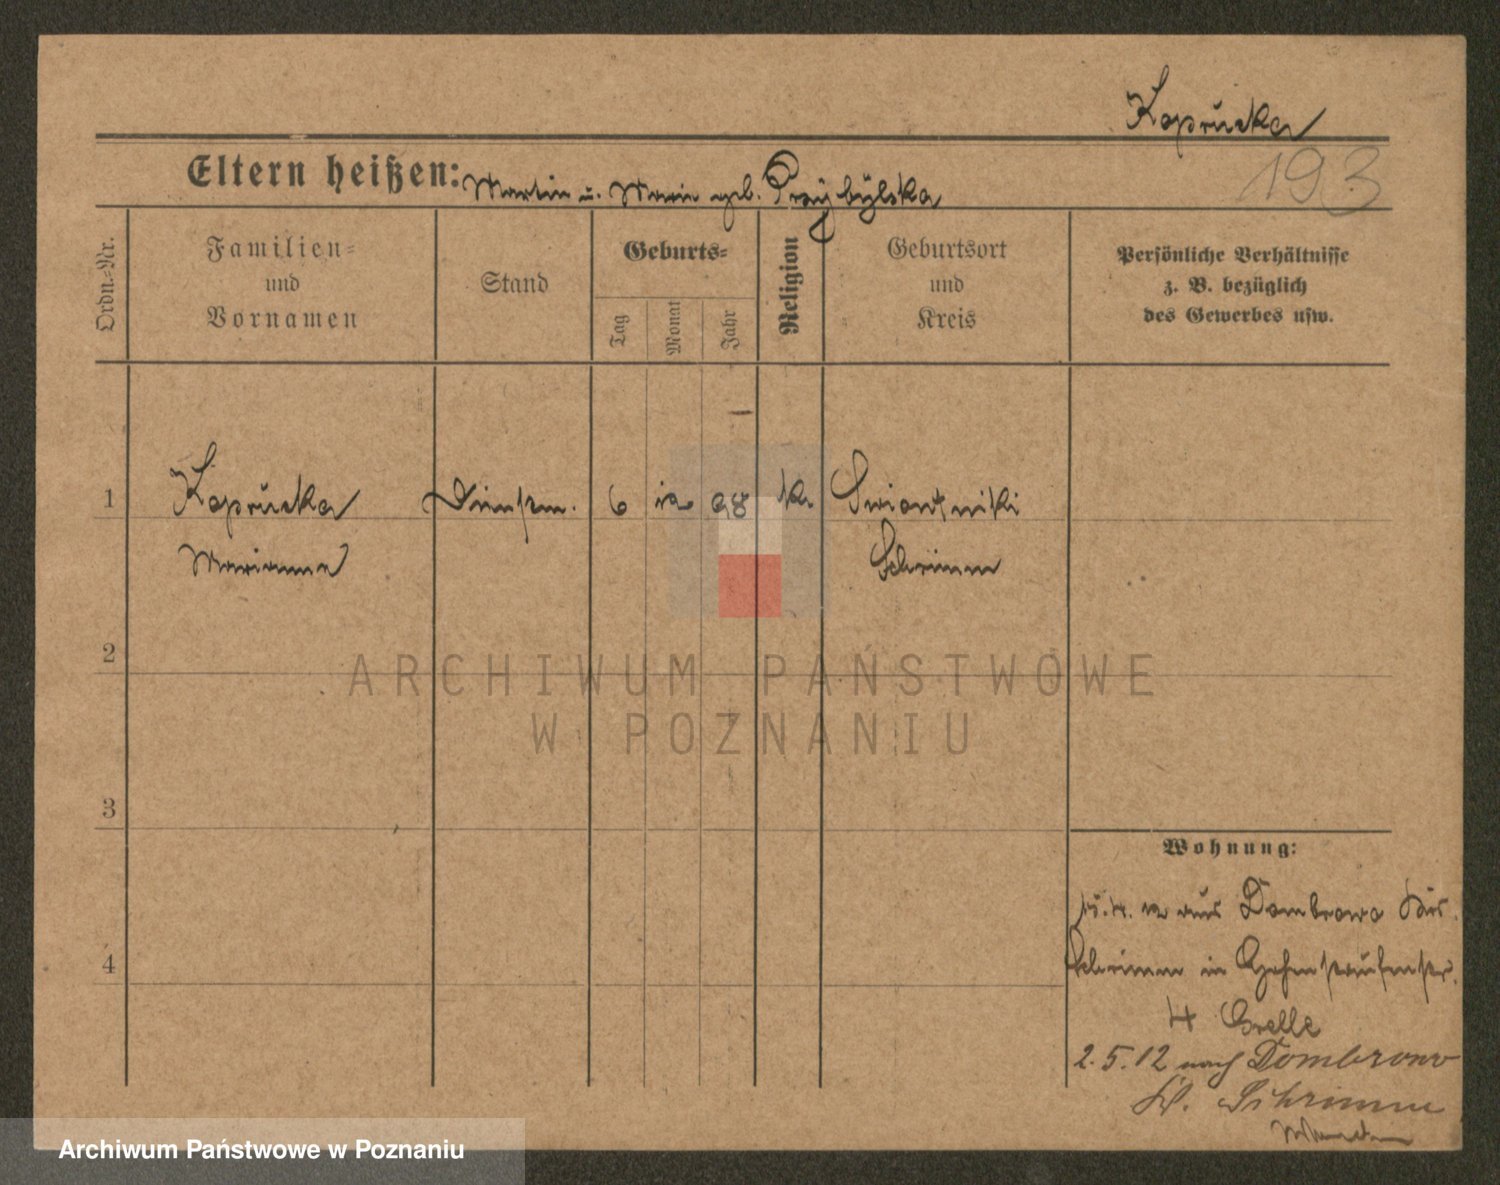 Kapruska
193
Eltern heißen: Martin u. Marie geb. Przybylska
Ordn.=Nr.
Familien=
und
Vornamen
Stand
Geburts=
Tag
Monat
Jahr
Religion
Geburtsort
und
Kreis
Persönliche Verhältnisse
z. B. bezüglich
des Gewerbes usw.
1
Kapruska
Marianna
Dienstm.
6
12
98
k.
Swiontniki
Schrimm
2
3
4
Wohnung:
15.4.12 aus Dombrowo Krs.
Schrimm in Hohenstaufenstr.
4 Grelle
2.5.12 nach Dombrowo
Kr. Schrimm
ARCHIWUM PAŃSTWOWE
W POZNANIU
Archiwum Państwowe w Poznaniu